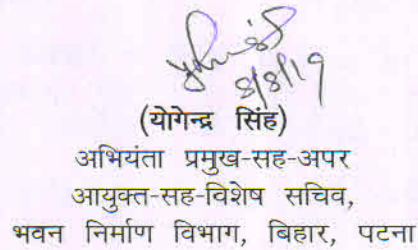 8/8/19
(योगेन्द्र सिंह)
अभियंता प्रमुख-सह-अपर
आयुक्त-सह-विशेष सचिव,
भवन निर्माण विभाग, बिहार, पटना